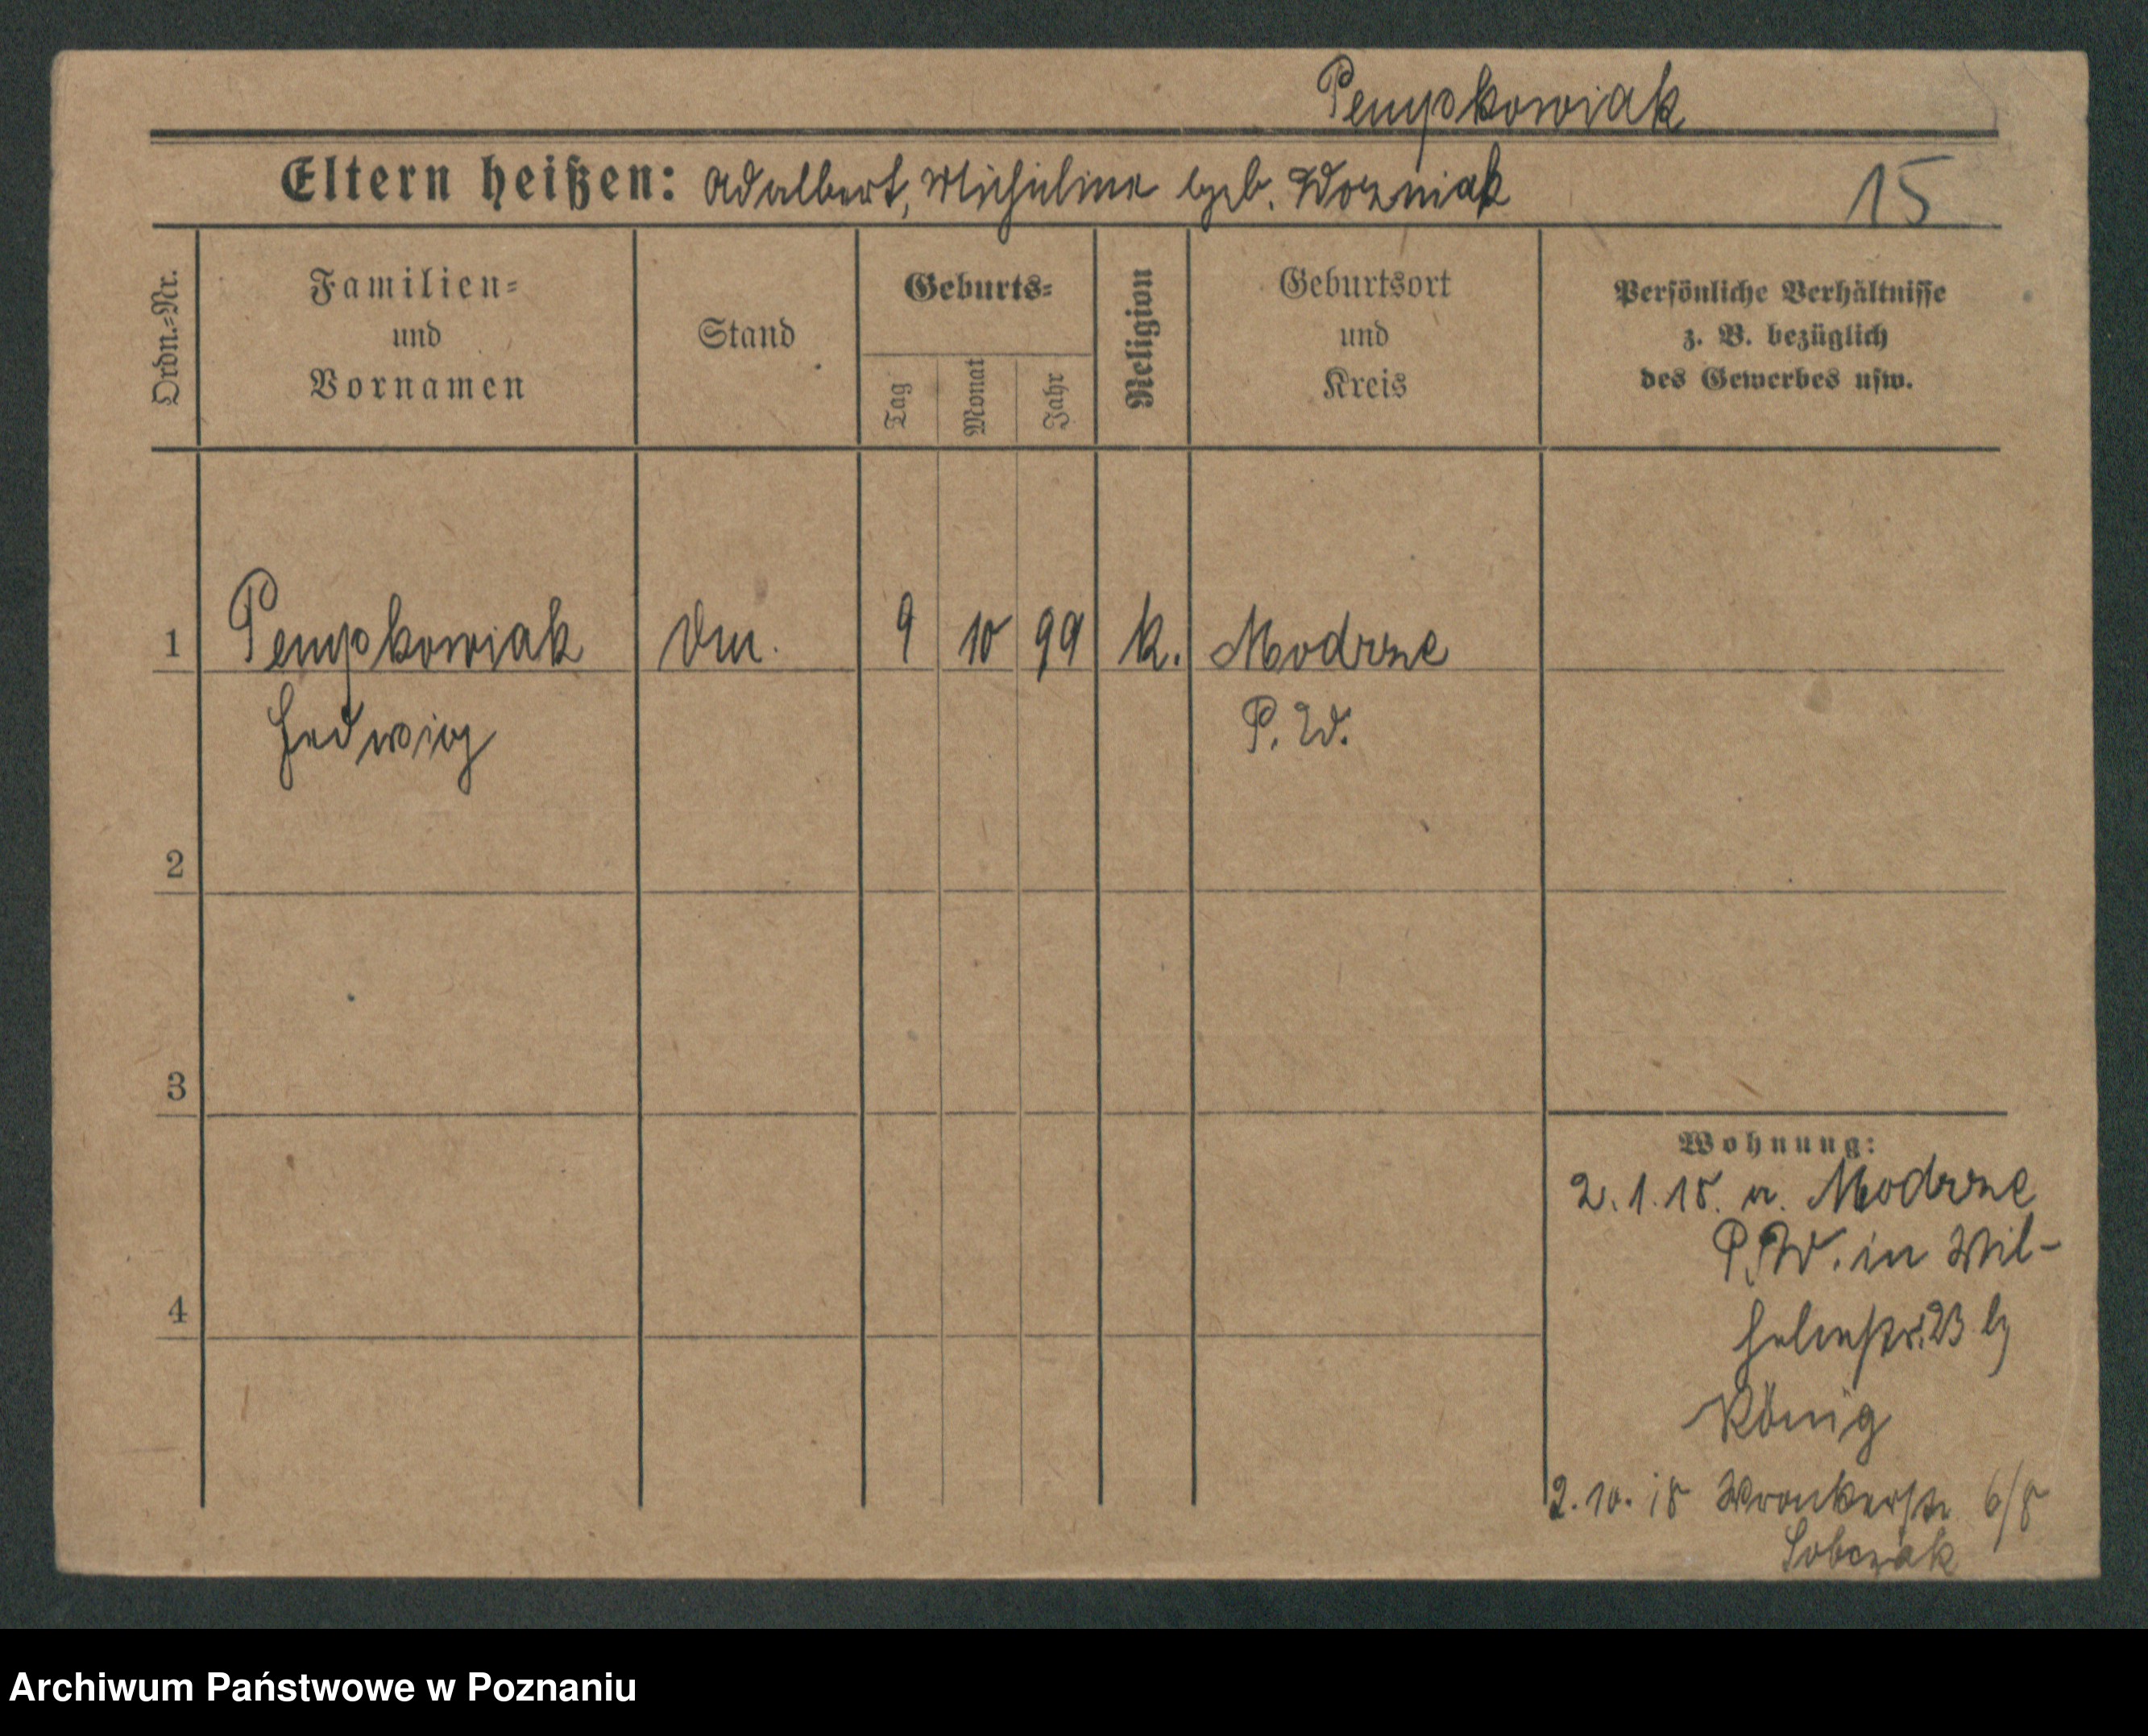 Pempkowiak
Eltern heißen: Adalbert, Michaline geb. Wozniak 15
Ordn.-Nr.
Familien-
und
Vornamen
Stand
Geburts-
Tag
Monat
Jahr
Religion
Geburtsort
und
Kreis
Persönliche Verhältnisse
z. B. bezüglich
des Gewerbes usw.
1 Pempkowiak 9 10 99 k. Modrze
Hedwig P. W.
2
3
4
Wohnung:
2.1.18. v. Modrze
P.W. in Wil-
helmstr. 23 b/
König
2.10.18 Wronkerstr. 6/8
Sobczak
Archiwum Państwowe w Poznaniu